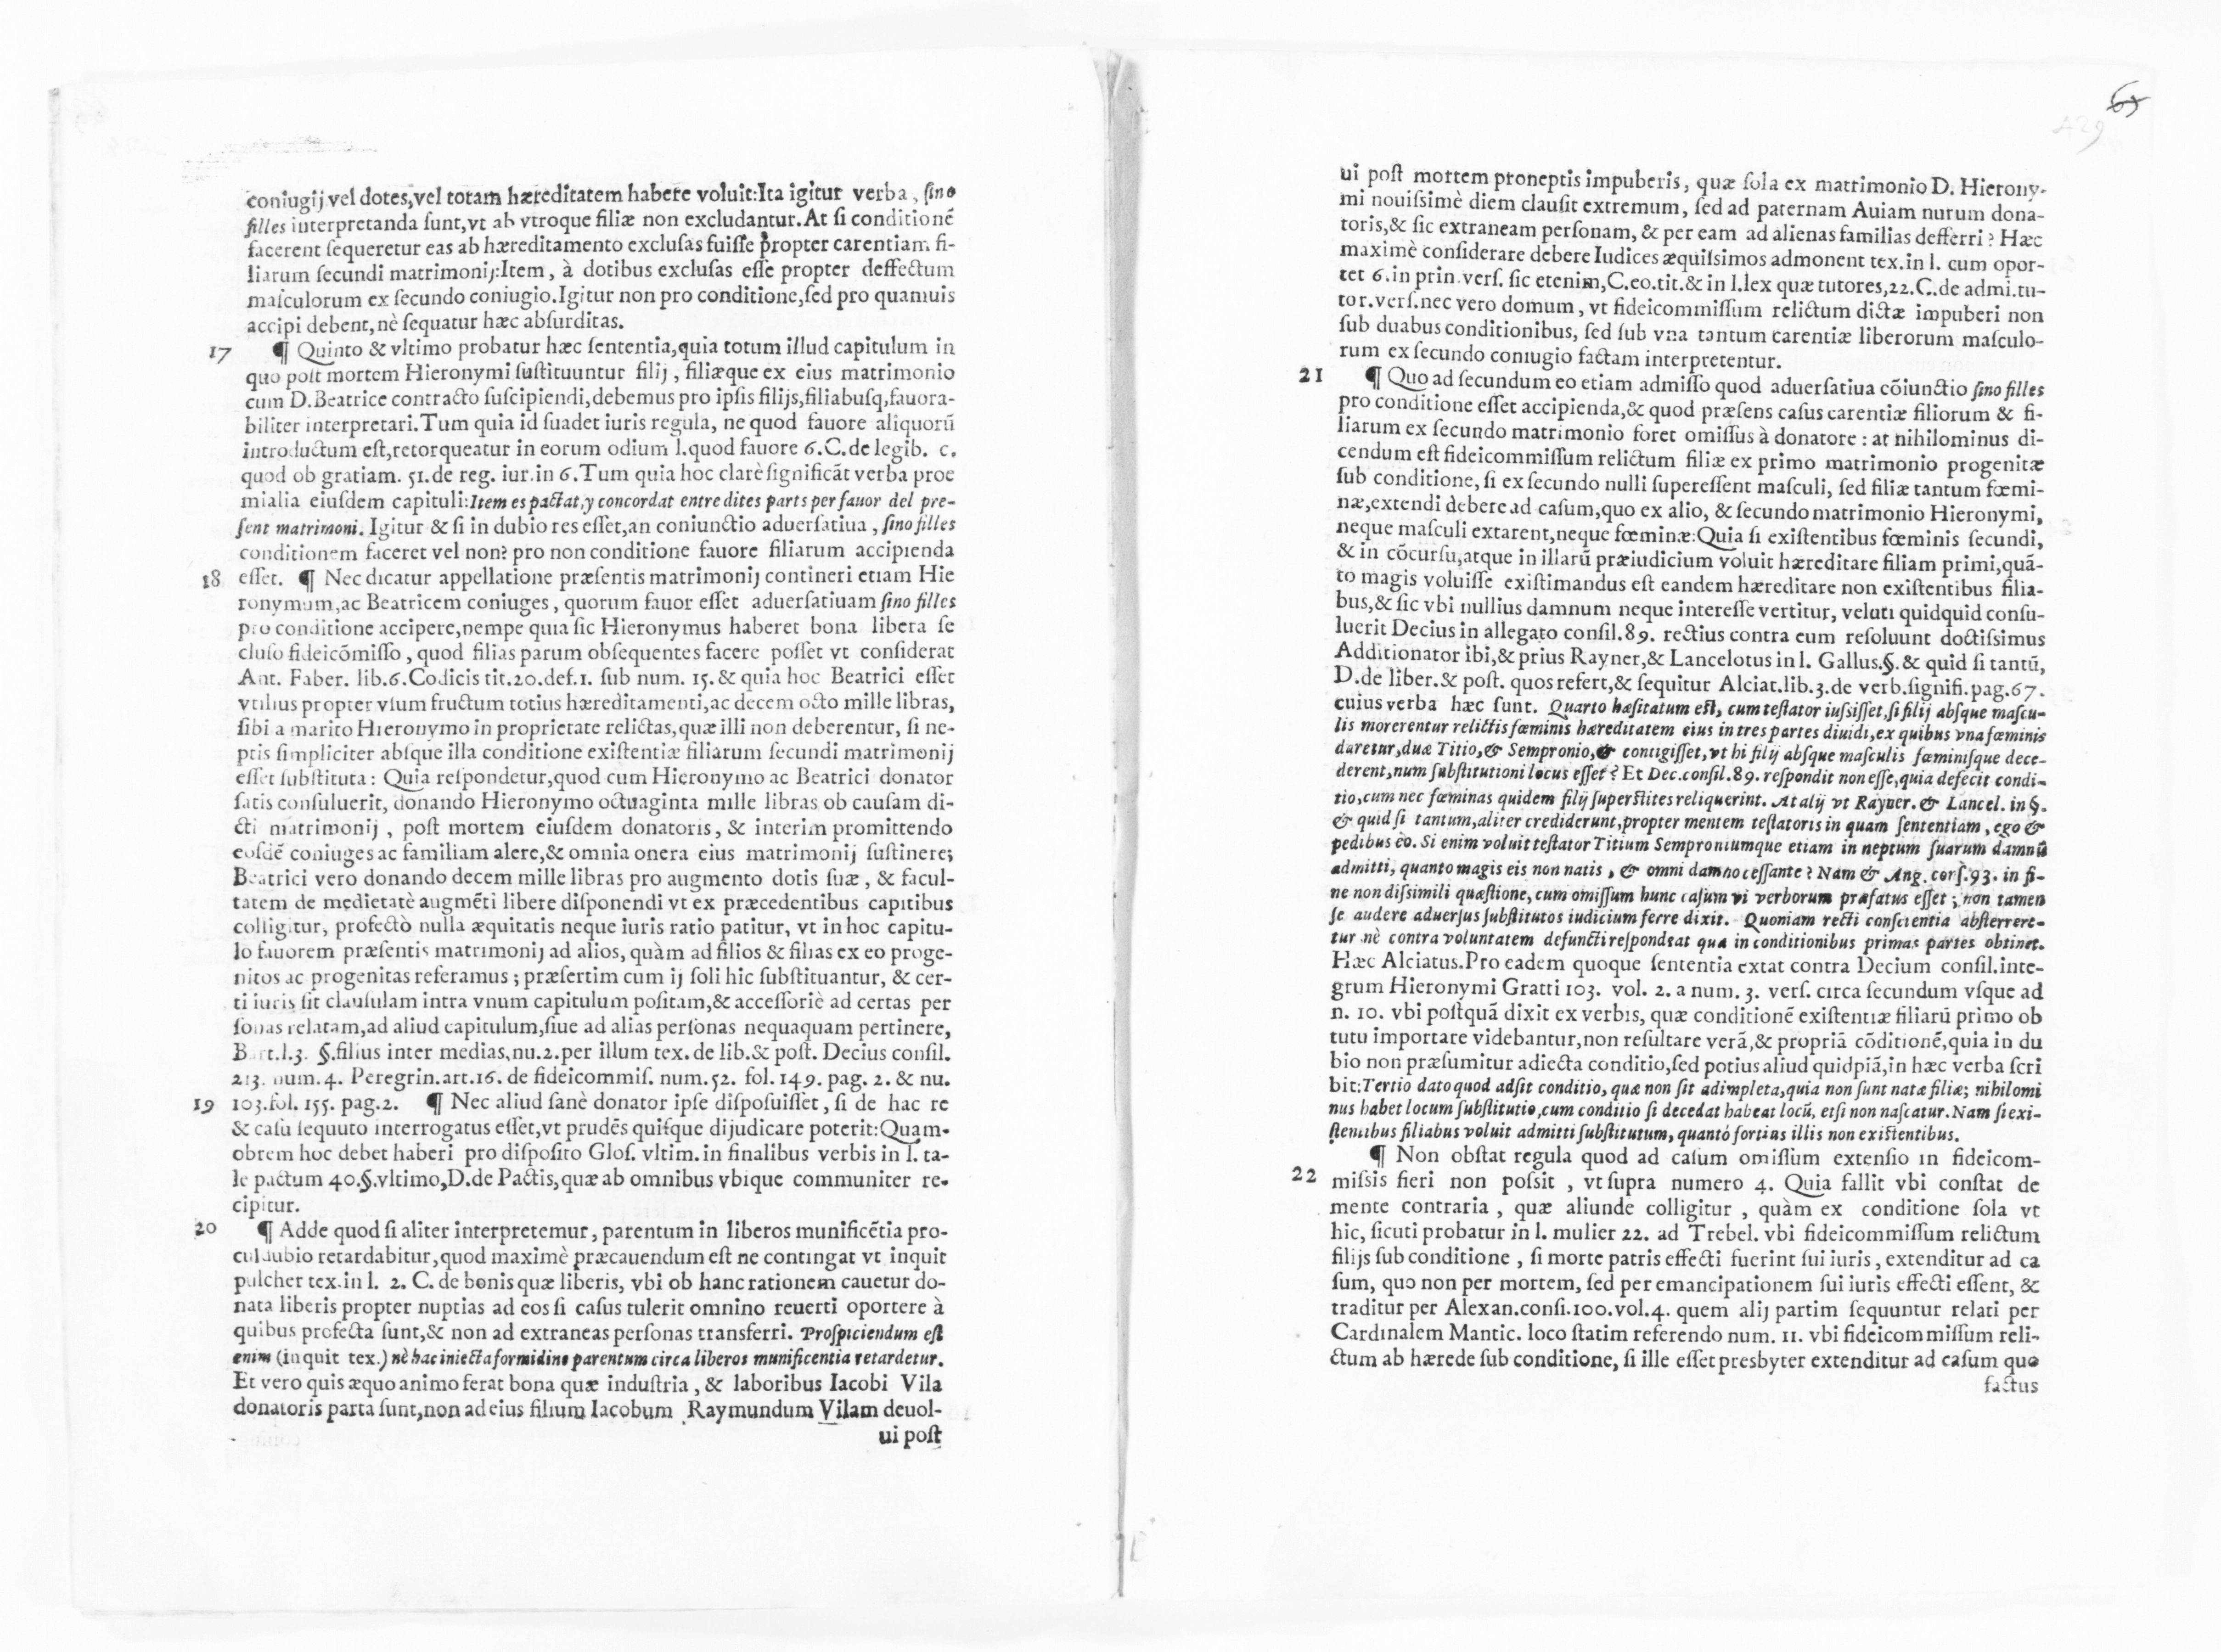 coniugij vel dotes, vel totam hæreditatem habere voluit: Ita igitur verba, sino
filles interpretanda sunt, vt ab vtroque filiæ non excludantur. At si conditionẽ
facerent sequeretur eas ab hæreditamento exclusas fuisse propter carentiam fi-
liarum secundi matrimonij: Item, à dotibus exclusas esse propter deffectum
masculorum ex secundo coniugio. Igitur non pro conditione, sed pro quamuis
accipi debent, nè sequatur hæc absurditas.
17 ¶ Quinto & vltimo probatur hæc sententia, quia totum illud capitulum in
quo post mortem Hieronymi sustituuntur filij, filiæque ex eius matrimonio
cum D. Beatrice contracto suscipiendi, debemus pro ipsis filijs, filiabusq, fauora-
biliter interpretari. Tum quia id suadet iuris regula, ne quod fauore aliquorũ
introductum est, retorqueatur in eorum odium l. quod fauore 6. C. de legib. c.
quod ob gratiam. 51. de reg. iur. in 6. Tum quia hoc clarè significãt verba proe
mialia eiusdem capituli: Item es pactat, y concordat entre dites parts per fauor del pre-
sent matrimoni. Igitur & si in dubio res esset, an coniunctio aduersatiua, sino filles
conditionem faceret vel non? pro non conditione fauore filiarum accipienda
18 esset. ¶ Nec dicatur appellatione præsentis matrimonij contineri etiam Hie
ronymum, ac Beatricem coniuges, quorum fauor esset aduersatiuam sino filles
pro conditione accipere, nempe quia sic Hieronymus haberet bona libera se
cluso fideicõmisso, quod filias parum obsequentes facere posset vt considerat
Ant. Faber. lib. 6. Codicis tit. 20. def. 1. sub num. 15. & quia hoc Beatrici esset
vtilius propter vsum fructum totius hæreditamenti, ac decem octo mille libras,
sibi a marito Hieronymo in proprietate relictas, quæ illi non deberentur, si ne-
ptis simpliciter absque illa conditione existentiæ filiarum secundi matrimonij
esset substituta: Quia respondetur, quod cum Hieronymo ac Beatrici donator
satis consuluerit, donando Hieronymo octuaginta mille libras ob causam di-
cti matrimonij, post mortem eiusdem donatoris, & interim promittendo
eosdẽ coniuges ac familiam alere, & omnia onera eius matrimonij sustinere;
Beatrici vero donando decem mille libras pro augmento dotis suæ, & facul-
tatem de medietatè augmẽti libere disponendi vt ex præcedentibus capitibus
colligitur, profectò nulla æquitatis neque iuris ratio patitur, vt in hoc capitu-
lo fauorem præsentis matrimonij ad alios, quàm ad filios & filias ex eo proge-
nitos ac progenitas referamus; præsertim cum ij soli hic substituantur, & cer-
ti iuris sit clausulam intra vnum capitulum positam, & accessoriè ad certas per
sonas relatam, ad aliud capitulum, siue ad alias personas nequaquam pertinere,
Bart. l. 3. §. filius inter medias, nu. 2. per illum tex. de lib. & post. Decius consil.
213. num. 4. Peregrin. art. 16. de fideicommis. num. 52. fol. 149. pag. 2. & nu.
19 103. fol. 155. pag. 2. ¶ Nec aliud sanè donator ipse disposuisset, si de hac re
& casù sequuto interrogatus esset, vt prudẽs quisque dijudicare poterit: Quam-
obrem hoc debet haberi pro disposito Glos. vltim. in finalibus verbis in l. ta-
le pactum 40. §. vltimo, D. de Pactis, quæ ab omnibus vbique communiter re-
cipitur.
20 ¶ Adde quod si aliter interpretemur, parentum in liberos munificẽtia pro-
culdubio retardabitur, quod maximè præcauendum est ne contingat vt inquit
pulcher tex. in l. 2. C. de bonis quæ liberis, vbi ob hanc rationem cauetur do-
nata liberis propter nuptias ad eos si casus tulerit omnino reuerti oportere à
quibus profecta sunt, & non ad extraneas personas transferri. Prospiciendum est
enim (inquit tex.) nè hac iniecta formidine parentum circa liberos munificentia retardetur.
Et vero quis æquo animo ferat bona quæ industria, & laboribus Iacobi Vila
donatoris parta sunt, non ad eius filium Iacobum Raymundum Vilam deuol-
ui post
ui post mortem proneptis impuberis, quæ sola ex matrimonio D. Hierony-
mi nouissimè diem clausit extremum, sed ad paternam Auiam nurum dona-
toris, & sic extraneam personam, & per eam ad alienas familias defferri? Hæc
maximè considerare debere Iudices æquissimos admonent tex. in l. cum opor-
tet 6. in prin. vers. sic etenim, C. eo. tit. & in l. lex quæ tutores, 22. C. de admi. tu-
tor. vers. nec vero domum, vt fideicommissum relictum dictæ impuberi non
sub duabus conditionibus, sed sub vna tantum carentiæ liberorum masculo-
rum ex secundo coniugio factam interpretentur.
21 ¶ Quo ad secundum eo etiam admisso quod aduersatiua cõiunctio sino filles
pro conditione esset accipienda, & quod præsens casus carentiæ filiorum & fi-
liarum ex secundo matrimonio foret omissus à donatore: at nihilominus di-
cendum est fideicommissum relictum filiæ ex primo matrimonio progenitæ
sub conditione, si ex secundo nulli superessent masculi, sed filiæ tantum fœmi-
næ, extendi debere ad casum, quo ex alio, & secundo matrimonio Hieronymi,
neque masculi extarent, neque fœminæ: Quia si existentibus fœminis secundi,
& in cõcursu, atque in illarũ præiudicium voluit hæreditare filiam primi, quã-
to magis voluisse existimandus est eandem hæreditare non existentibus filia-
bus, & sic vbi nullius damnum neque interesse vertitur, veluti quidquid consu-
luerit Decius in allegato consil. 89. rectius contra eum resoluunt doctissimus
Additionator ibi, & prius Rayner, & Lancelotus in l. Gallus. §. & quid si tantũ,
D. de liber. & post. quos refert, & sequitur Alciat. lib. 3. de verb. signifi. pag. 67.
cuius verba hæc sunt. Quarto hæsitatum est, cum testator iussisset, si filij absque mascu-
lis morerentur relictis fœminis hæreditatem eius in tres partes diuidi, ex quibus vna fœminis
daretur, duæ Titio, & Sempronio, & contigisset, vt hi filij absque masculis fœminisque dece-
derent, num substitutioni locus esset? Et Dec. consil. 89. respondit non esse, quia defecit condi-
tio, cum nec fœminas quidem filij superstites reliquerint. At alij vt Rayner. & Lancel. in §.
& quid si tantum, aliter crediderunt, propter mentem testatoris in quam sententiam, ego &
pedibus eo. Si enim voluit testator Titium Semproniumque etiam in neptum suarum damnũ
admitti, quanto magis eis non natis, & omni damno cessante? Nam & Ang. cons. 93. in fi-
ne non dissimili quæstione, cum omissum hunc casum vi verborum præfatus esset; non tamen
se audere aduersus substitutos iudicium ferre dixit. Quoniam recti conscientia absterrere-
tur nè contra voluntatem defuncti respondeat qua in conditionibus primas partes obtinet.
Hæc Alciatus. Pro eadem quoque sententia extat contra Decium consil. inte-
grum Hieronymi Gratti 103. vol. 2. a num. 3. vers. circa secundum vsque ad
n. 10. vbi postquã dixit ex verbis, quæ conditionẽ existentiæ filiarũ primo ob
tutu importare videbantur, non resultare verã, & propriã cõditionẽ, quia in du
bio non præsumitur adiecta conditio, sed potius aliud quidpiã, in hæc verba scri
bit: Tertio dato quod adsit conditio, quæ non sit adimpleta, quia non sunt natæ filiæ; nihilomi
nus habet locum substitutio, cum conditio si decedat habeat locũ, etsi non nascatur. Nam si exi-
stentibus filiabus voluit admitti substitutum, quantó fortius illis non existentibus.
¶ Non obstat regula quod ad casum omissum extensio in fideicom-
22 missis fieri non possit, vt supra numero 4. Quia fallit vbi constat de
mente contraria, quæ aliunde colligitur, quàm ex conditione sola vt
hic, sicuti probatur in l. mulier 22. ad Trebel. vbi fideicommissum relictum
filijs sub conditione, si morte patris effecti fuerint sui iuris, extenditur ad ca
sum, quo non per mortem, sed per emancipationem sui iuris effecti essent, &
traditur per Alexan. consi. 100. vol. 4. quem alij partim sequuntur relati per
Cardinalem Mantic. loco statim referendo num. 11. vbi fideicommissum reli-
ctum ab hærede sub conditione, si ille esset presbyter extenditur ad casum quo
factus